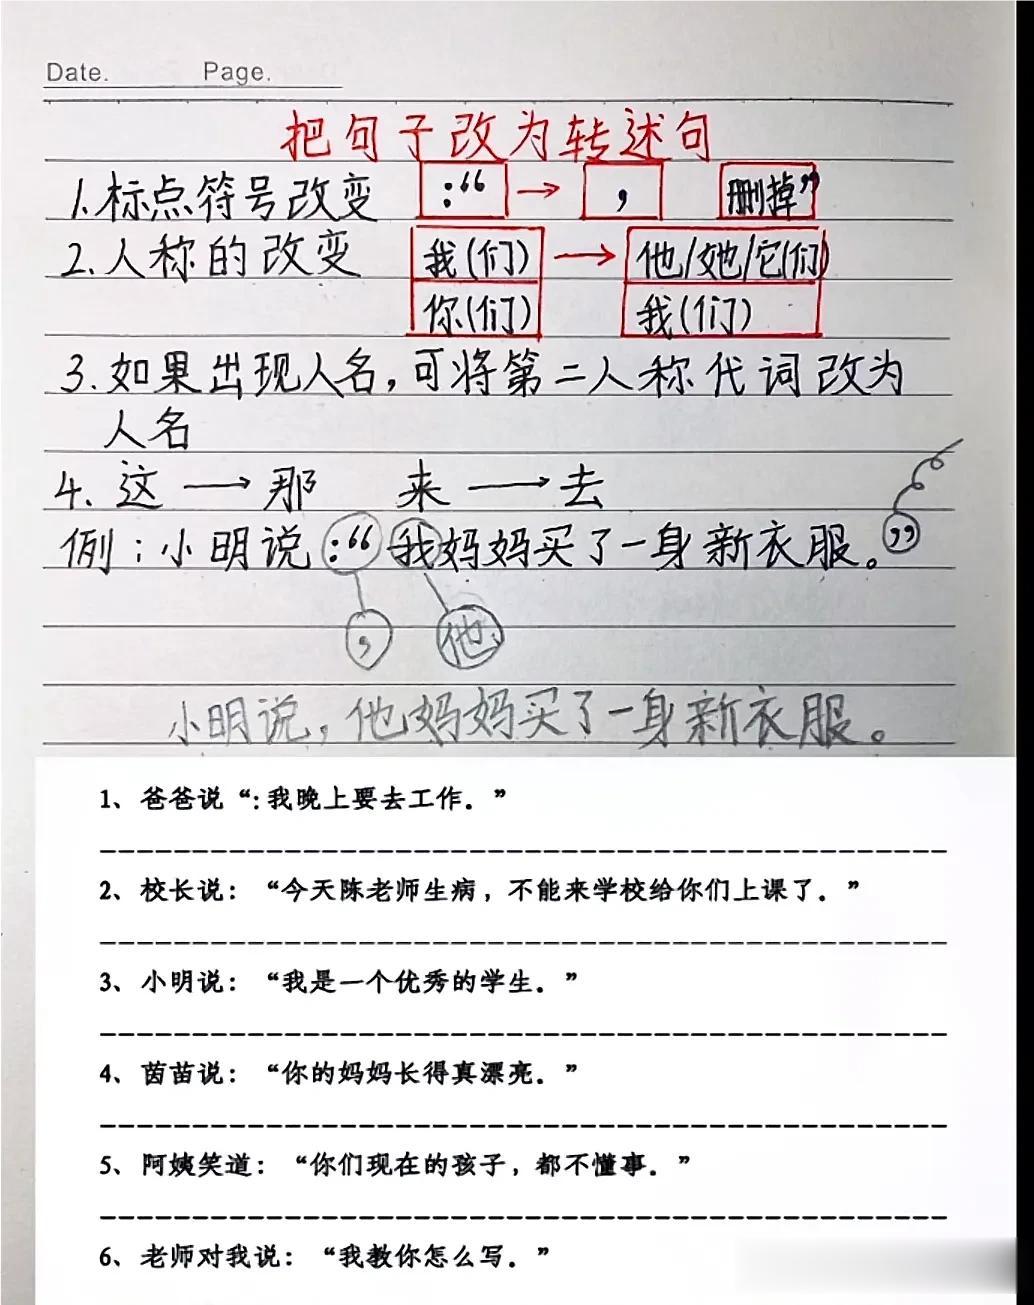 Date. Page.
把句子改为转述句
1.标点符号改变 :“ → , 删掉”
2.人称的改变 我(们) → 他/她/它(们)
你(们) 我(们)
3.如果出现人名,可将第二人称代词改为
人名
4.这 → 那 来 → 去
例:小明说:“我妈妈买了一身新衣服。”
, 他
小明说,他妈妈买了一身新衣服。
1、爸爸说“:我晚上要去工作。”
2、校长说:“今天陈老师生病,不能来学校给你们上课了。”
3、小明说:“我是一个优秀的学生。”
4、茵苗说:“你的妈妈长得真漂亮。”
5、阿姨笑道:“你们现在的孩子,都不懂事。”
6、老师对我说:“我教你怎么写。”